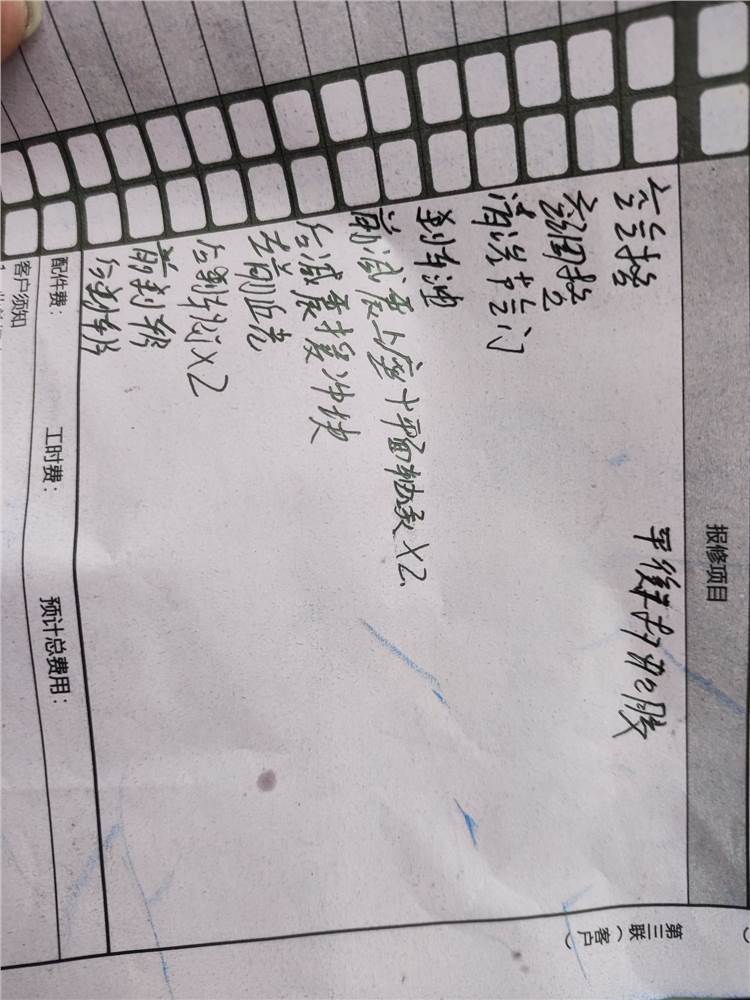 报修项目
空滤 平衡杆胶
空调滤
清洗节气门
刹车油
前减震上座+平面轴承X2
后减震缓冲块
左前近光
后刹车分X2
前刹车片
后刹车片
配件费： 工时费： 预计总费用：
客户须知
第三联（客户）